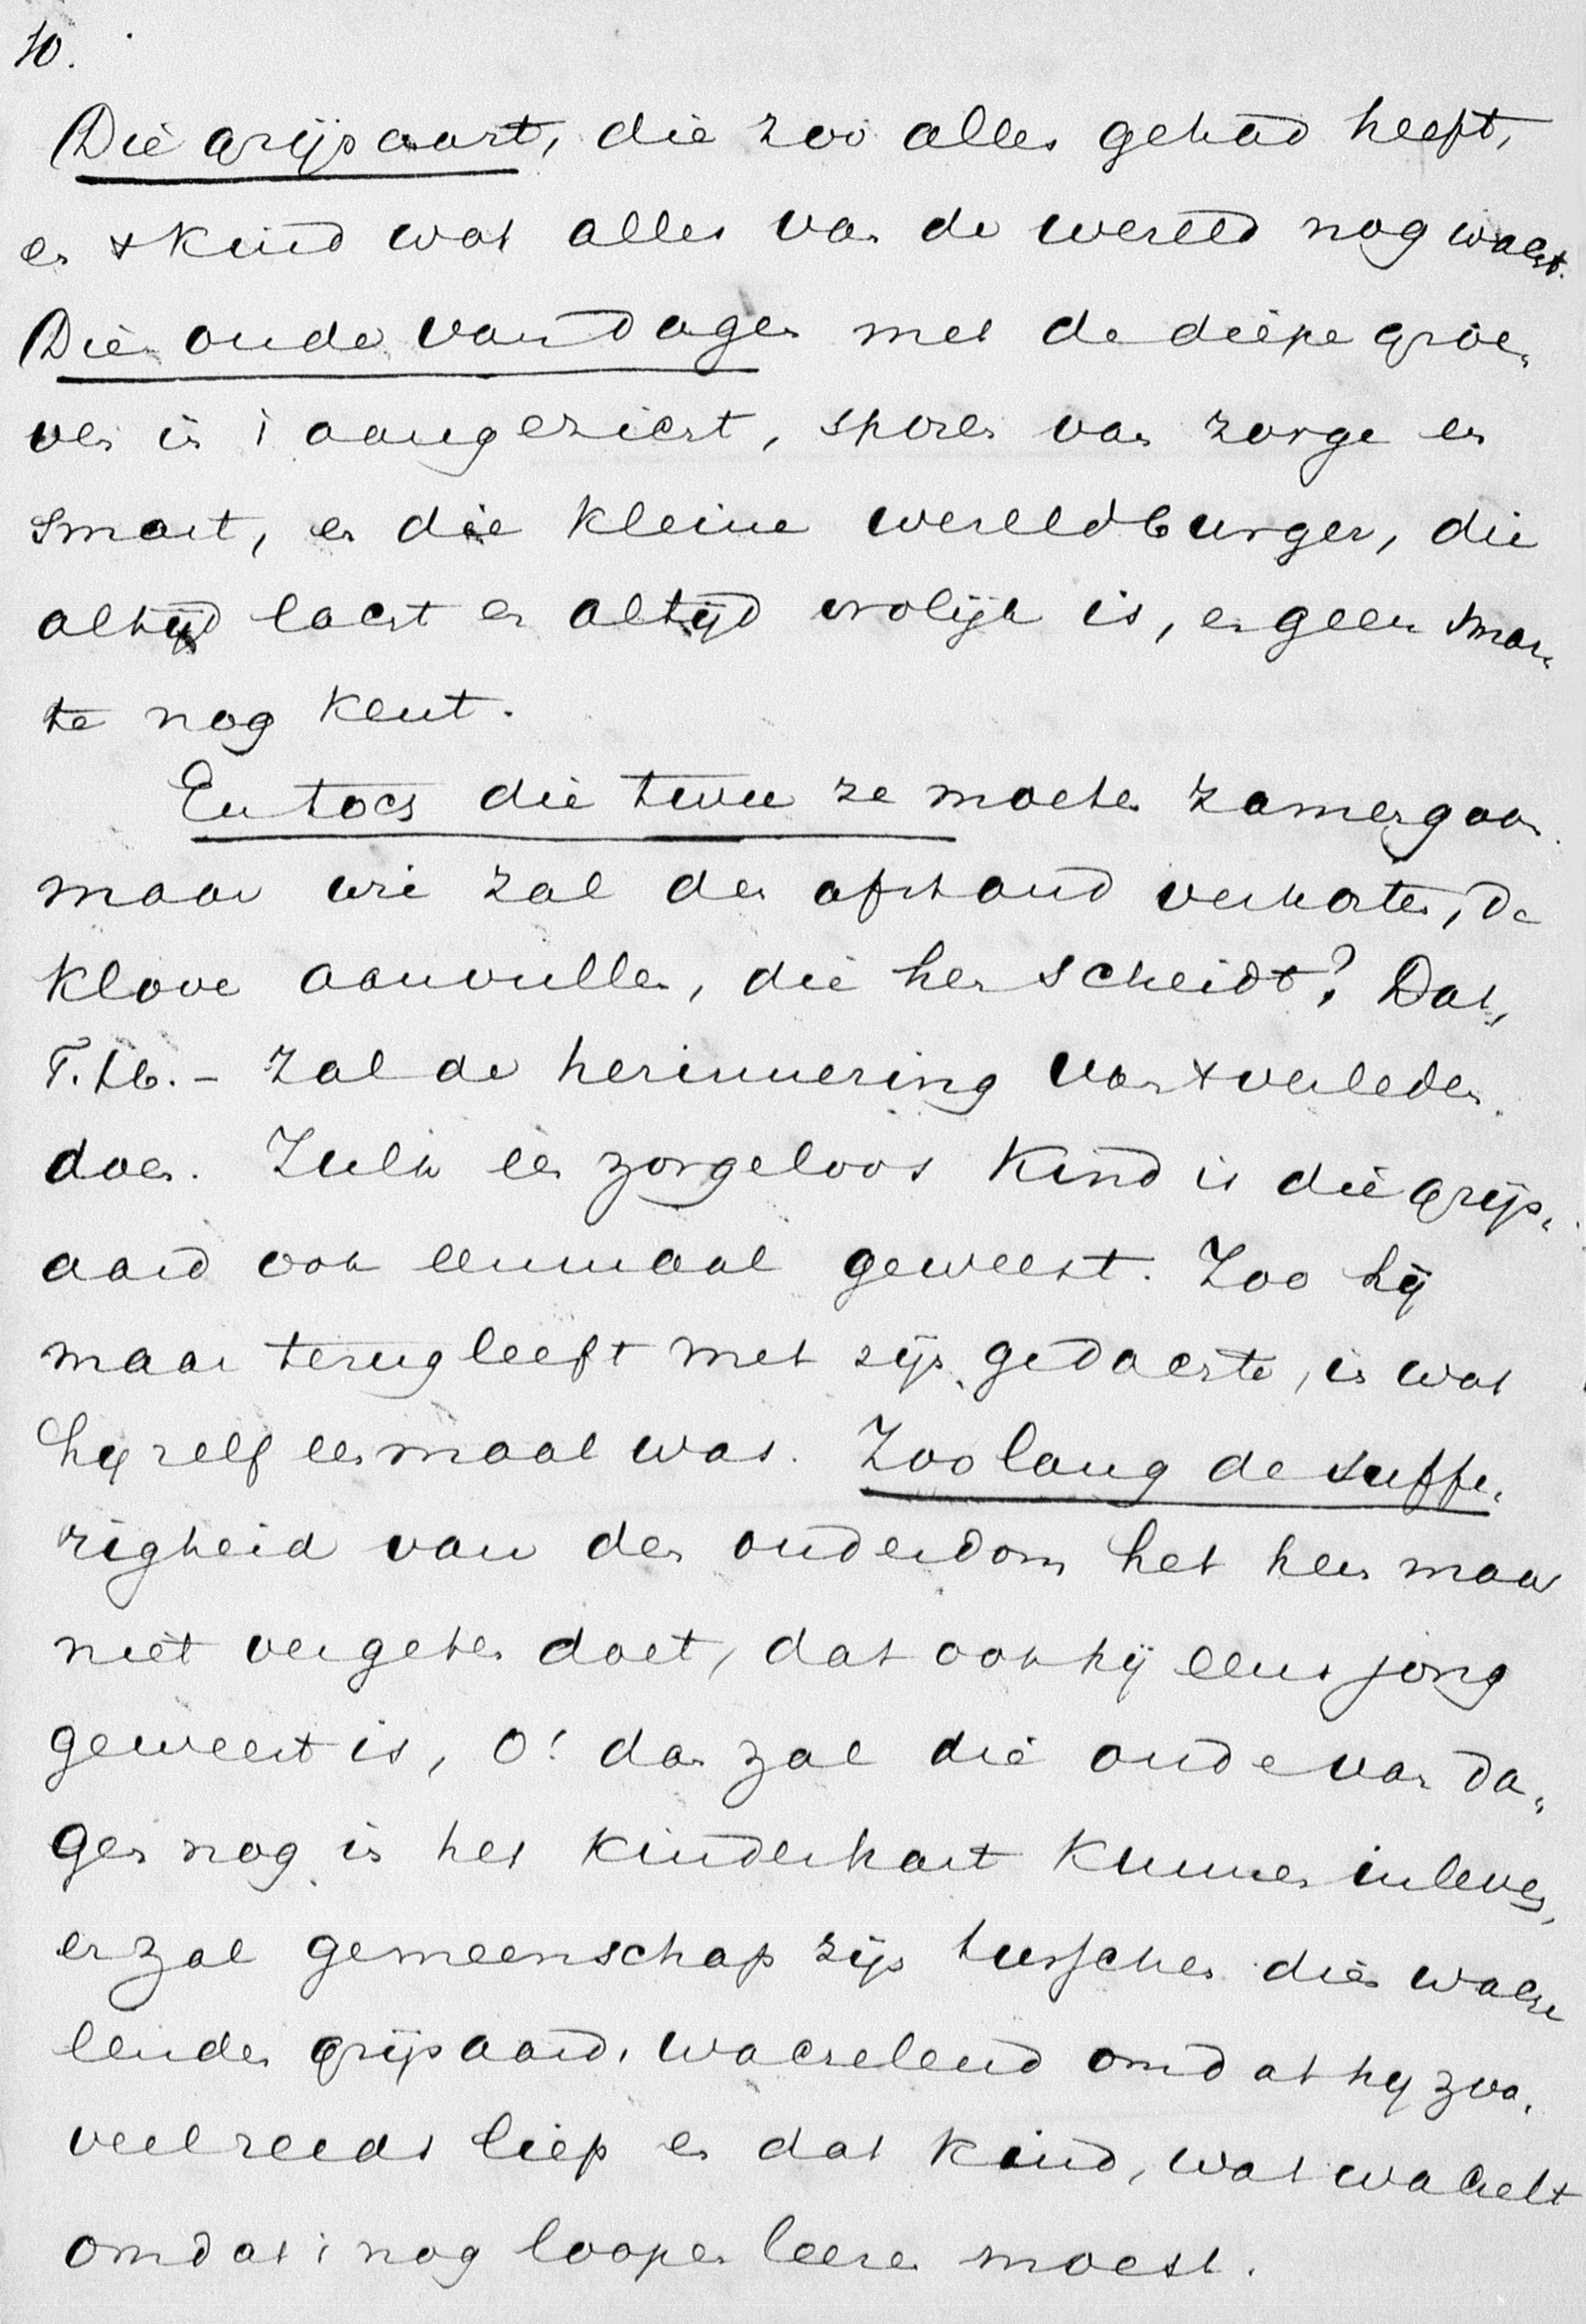 10.
Die grijsaart, die zoo alles gehad heeft,
en 't kind wat alles van de wereld nog wacht.
Die oude van dagen met de diepe groe„
ven in 't aangezicht, sporen van zorge en
smart, en die kleine wereldburger, die
altijd lacht en altijd vrolijk is, en geen smar„
te nog kent.
En toch die twee ze moeten zamengaan.
maar wie zal den afstand verkorten, de
klove aanvullen, die hen scheidt? Dat,
T.H. – zal de herinnering van 't verleden
doen. Zulk een zorgeloos kind is die grijs„
aard ook eenmaal geweest. Zoo hij
maar terugleeft met zijn gedachte, in wat
hij zelf eenmaal was. Zoolang de suffe„
righeid van den ouderdom het hem maar
niet vergeten doet, dat ook hij eens jong
geweest is, O! dan zal die oude van da„
gen nog in het kinderhart kunnen inleven,
er zal gemeenschap zijn tusschen dien wache„
lenden grijsaard, wachelend omdat hij zoo„
veel reeds liep en dat kind, wat wachelt
omdat 't nog loopen leeren moest.